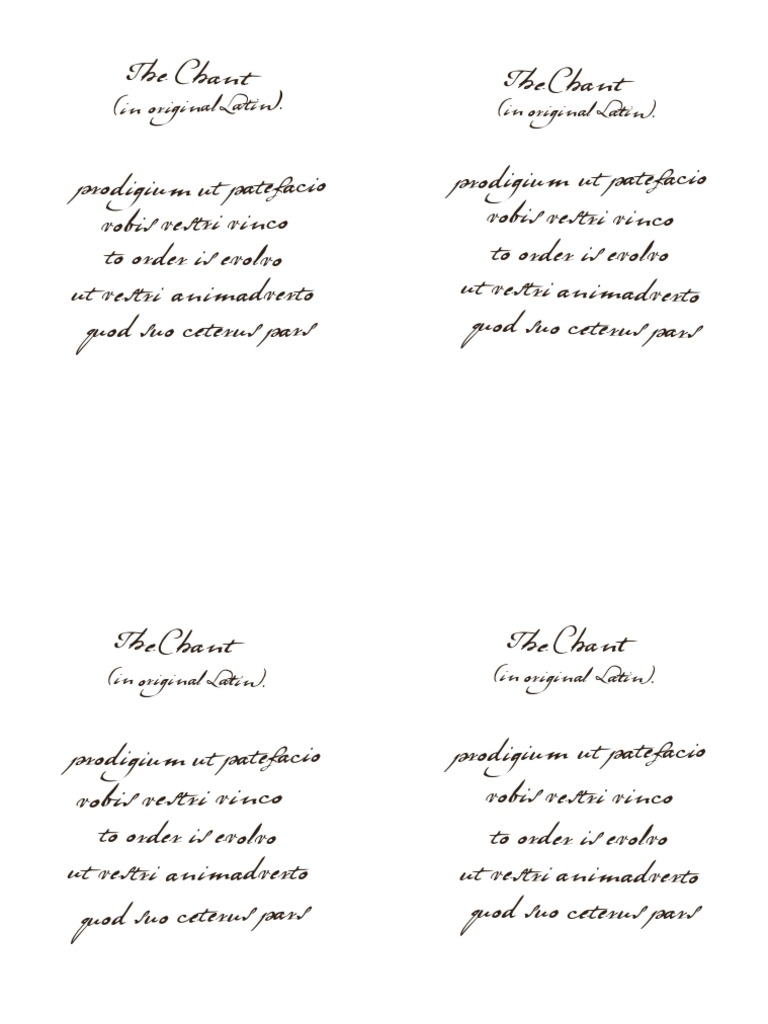 The Chant
(in original Latin).
prodigium ut patefacio
vobis vestri vinco
to order is evolvo
ut vestri animadverto
quod suo ceterus pars
The Chant
(in original Latin).
prodigium ut patefacio
vobis vestri vinco
to order is evolvo
ut vestri animadverto
quod suo ceterus pars
The Chant
(in original Latin).
prodigium ut patefacio
vobis vestri vinco
to order is evolvo
ut vestri animadverto
quod suo ceterus pars
The Chant
(in original Latin).
prodigium ut patefacio
vobis vestri vinco
to order is evolvo
ut vestri animadverto
quod suo ceterus pars